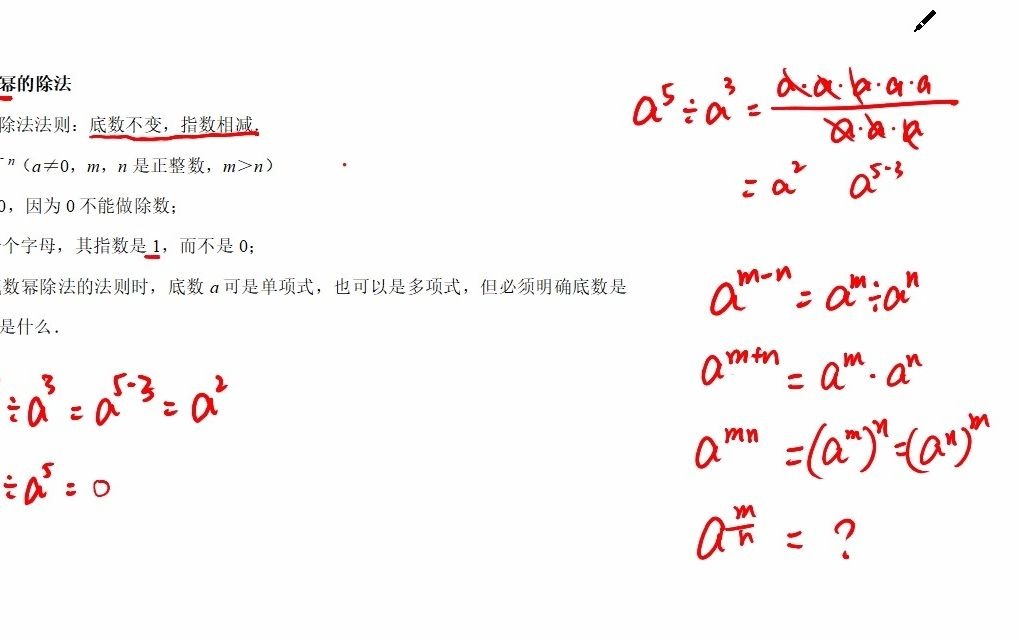 幂的除法
除法法则：底数不变，指数相减．
⁻ⁿ（a≠0，m，n 是正整数，m＞n）
0，因为 0 不能做除数；
个字母，其指数是 1，而不是 0；
数幂除法的法则时，底数 a 可是单项式，也可以是多项式，但必须明确底数是
是什么．
÷a³ = a⁵⁻³ = a²
÷a⁵ = 0
a⁵÷a³ = a·a·a·a·a / a·a·a
= a² a⁵⁻³
a^{m-n} = a^m ÷ a^n
a^{m+n} = a^m · a^n
a^{mn} = (a^m)^n = (a^n)^m
a^{m/n} = ?